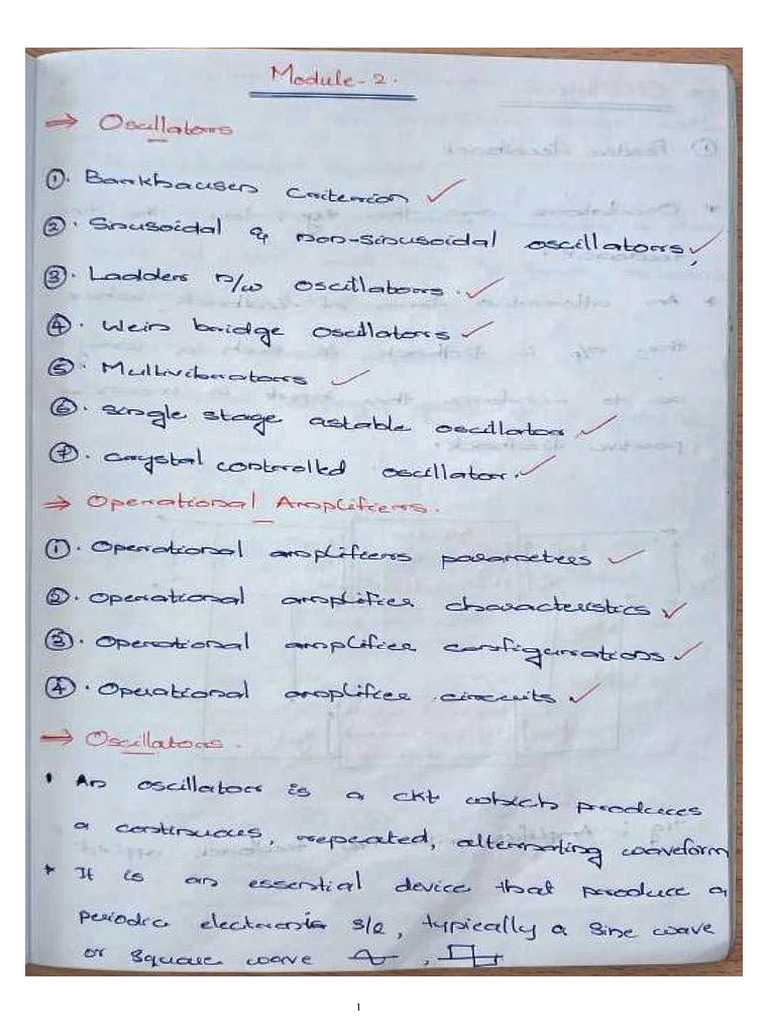 Module - 2.
⇒ Oscillators
①. Barkhausen Criterion ✓
②. Sinusoidal & non-sinusoidal oscillators, ✓
③. Ladders n/w oscillators. ✓
④. Wein bridge oscillators ✓
⑤. Multivibrators ✓
⑥. single stage astable oscillator ✓
⑦. crystal controlled oscillator. ✓
⇒ Operational Amplifiers.
①. Operational amplifiers parameters ✓
②. Operational amplifier characteristics ✓
③. Operational amplifier configurations ✓
④. Operational amplifier circuits ✓
⇒ Oscillators.
• An oscillator is a ckt which produces
a continuous, repeated, alternating waveform
* It is an essential device that produce a
periodic electronic s/l, typically a sine wave
or square wave ,
1